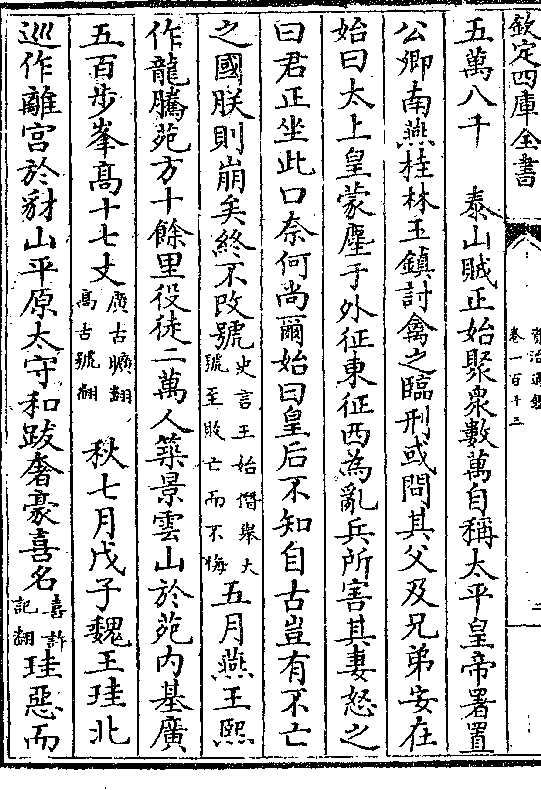 欽定四庫全書
資治通鑑
卷一百十三
二
五萬八千　泰山賊王始聚衆數萬自稱太平皇帝署置
公卿南燕桂林王鎮討禽之臨刑或問其父及兄弟安在
始曰太上皇蒙塵于外征東征西為亂兵所害其妻怒之
曰君正坐此口奈何尚爾始曰皇后不知自古豈有不亡
之國朕則崩矣終不改號史言王始僭舉大號至敗亡而不悔五月燕王熙
作龍騰苑方十餘里役徒二萬人築景雲山於苑内基廣
五百步峯高十七丈廣古曠翻高古號翻　秋七月戊子魏王珪北
巡作離宮於豺山平原太守和跋奢豪喜名喜許記翻珪惡而